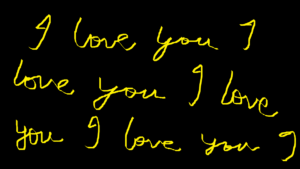 I love you I
love you I love
you I love you I